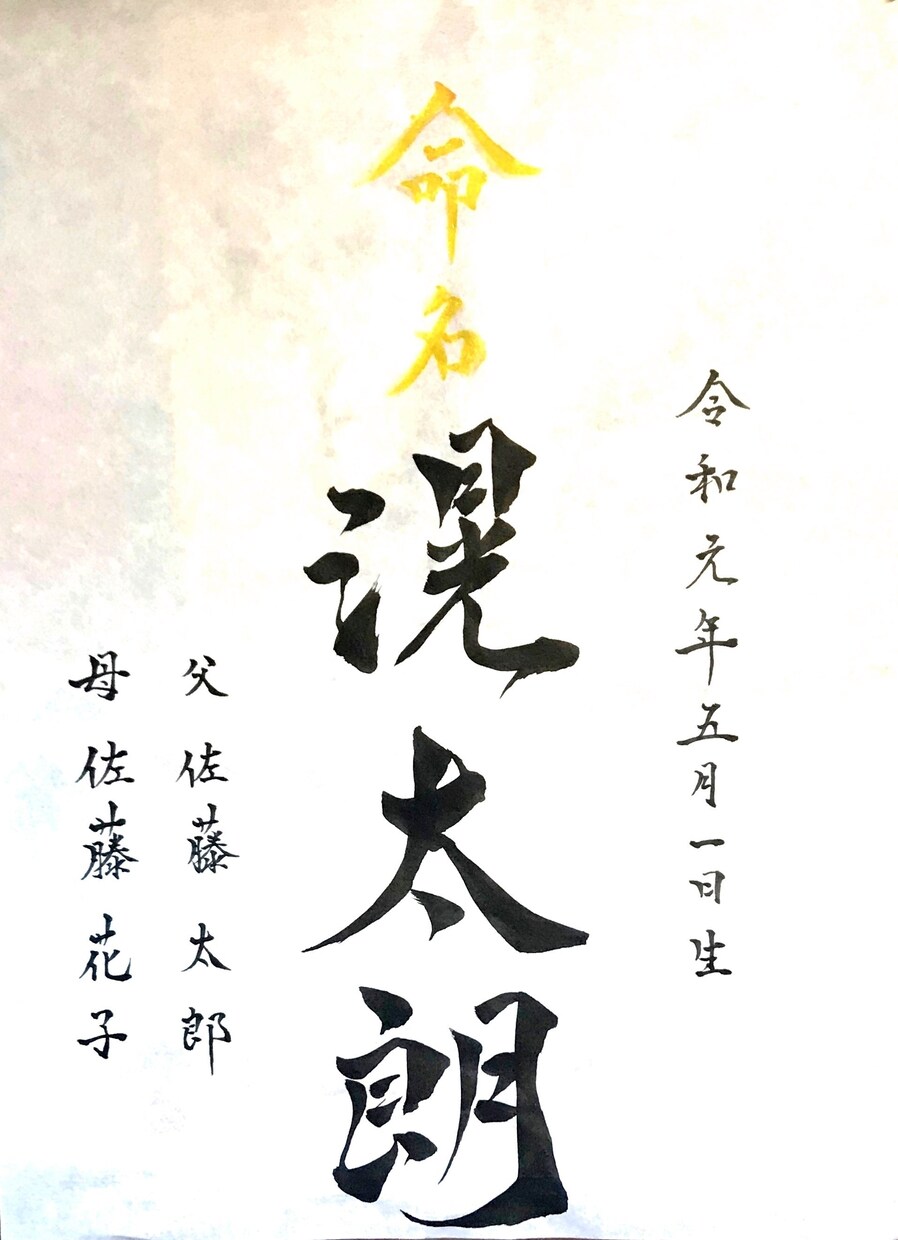 令和元年五月一日生
命名
滉太朗
父 佐藤 太郎
母 佐藤 花子